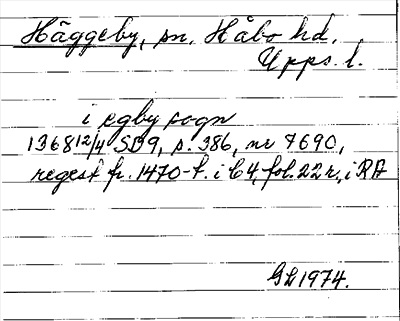 Häggeby, sn. Håbo hd.
Upps. l.
i egby sogn
1368 12/4 SD9, s. 386, nr 7690,
regest fr. 1470-t. i C4, fol. 22 r, i RA
GL 1974.